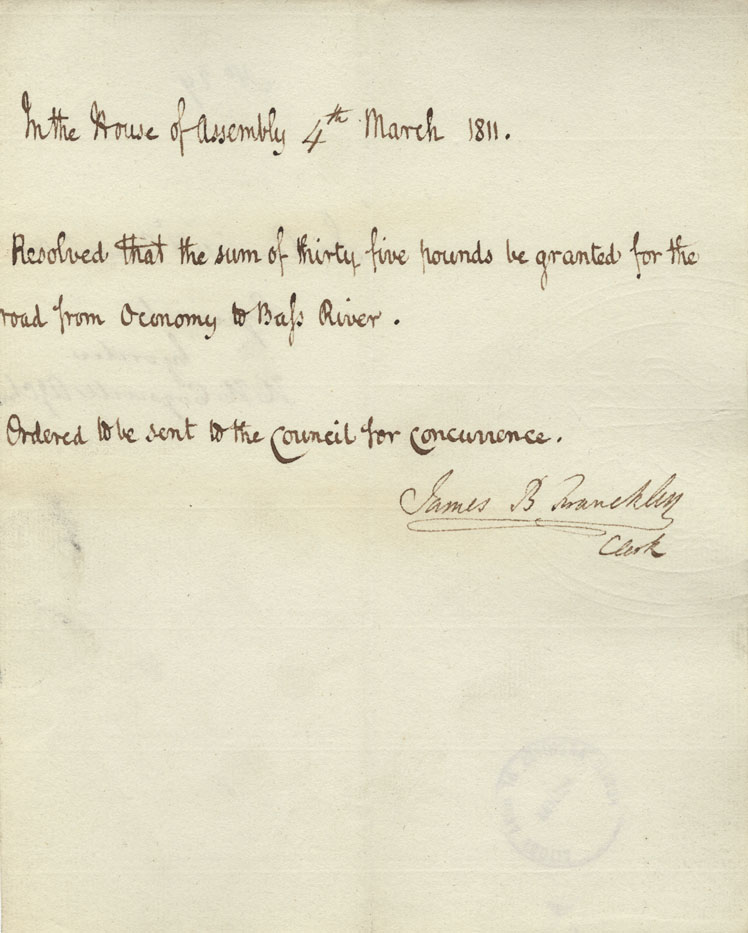 In the House of Assembly 4th March 1811.
Resolved that the sum of thirty five pounds be granted for the
road from Oeconomy to Baſs River.
Ordered to be sent to the Council for concurrence.
James B Franckling
Clerk